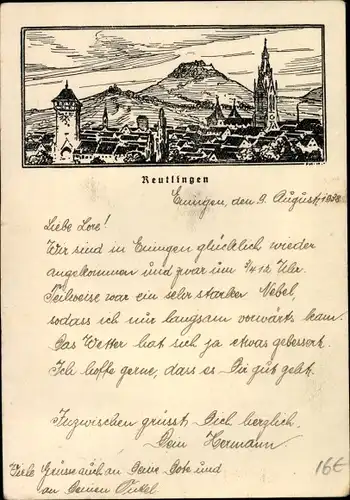 Reutlingen
Eningen, den 9. August 1938
Liebe Lore!
Wir sind in Eningen glücklich wieder
angekommen und zwar um 3/4 12 Uhr.
Teilweise war ein sehr starker Nebel,
sodass ich nur langsam vorwärts kam.
Das Wetter hat sich ja etwas gebessert.
Ich hoffe gerne, dass es Dir gut geht.
Inzwischen grüsst Dich herzlich
Dein Hermann
Viele Grüsse auch an Deine Gote und
an Deinen Onkel
16€